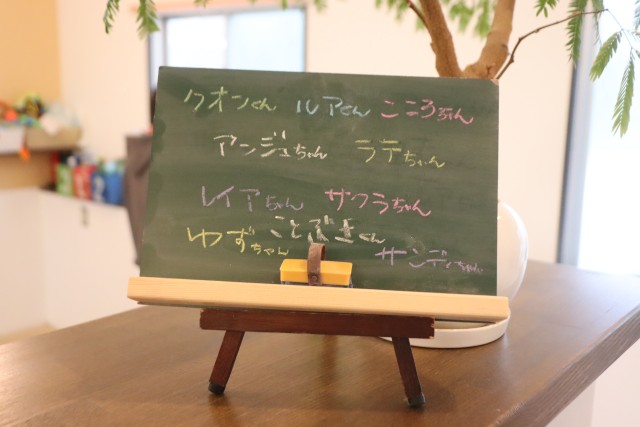 クオンくん ルアくん こころちゃん
アンジュちゃん ラテちゃん
レイアちゃん サクラちゃん
ことぶきくん
ゆずちゃん サンディちゃん